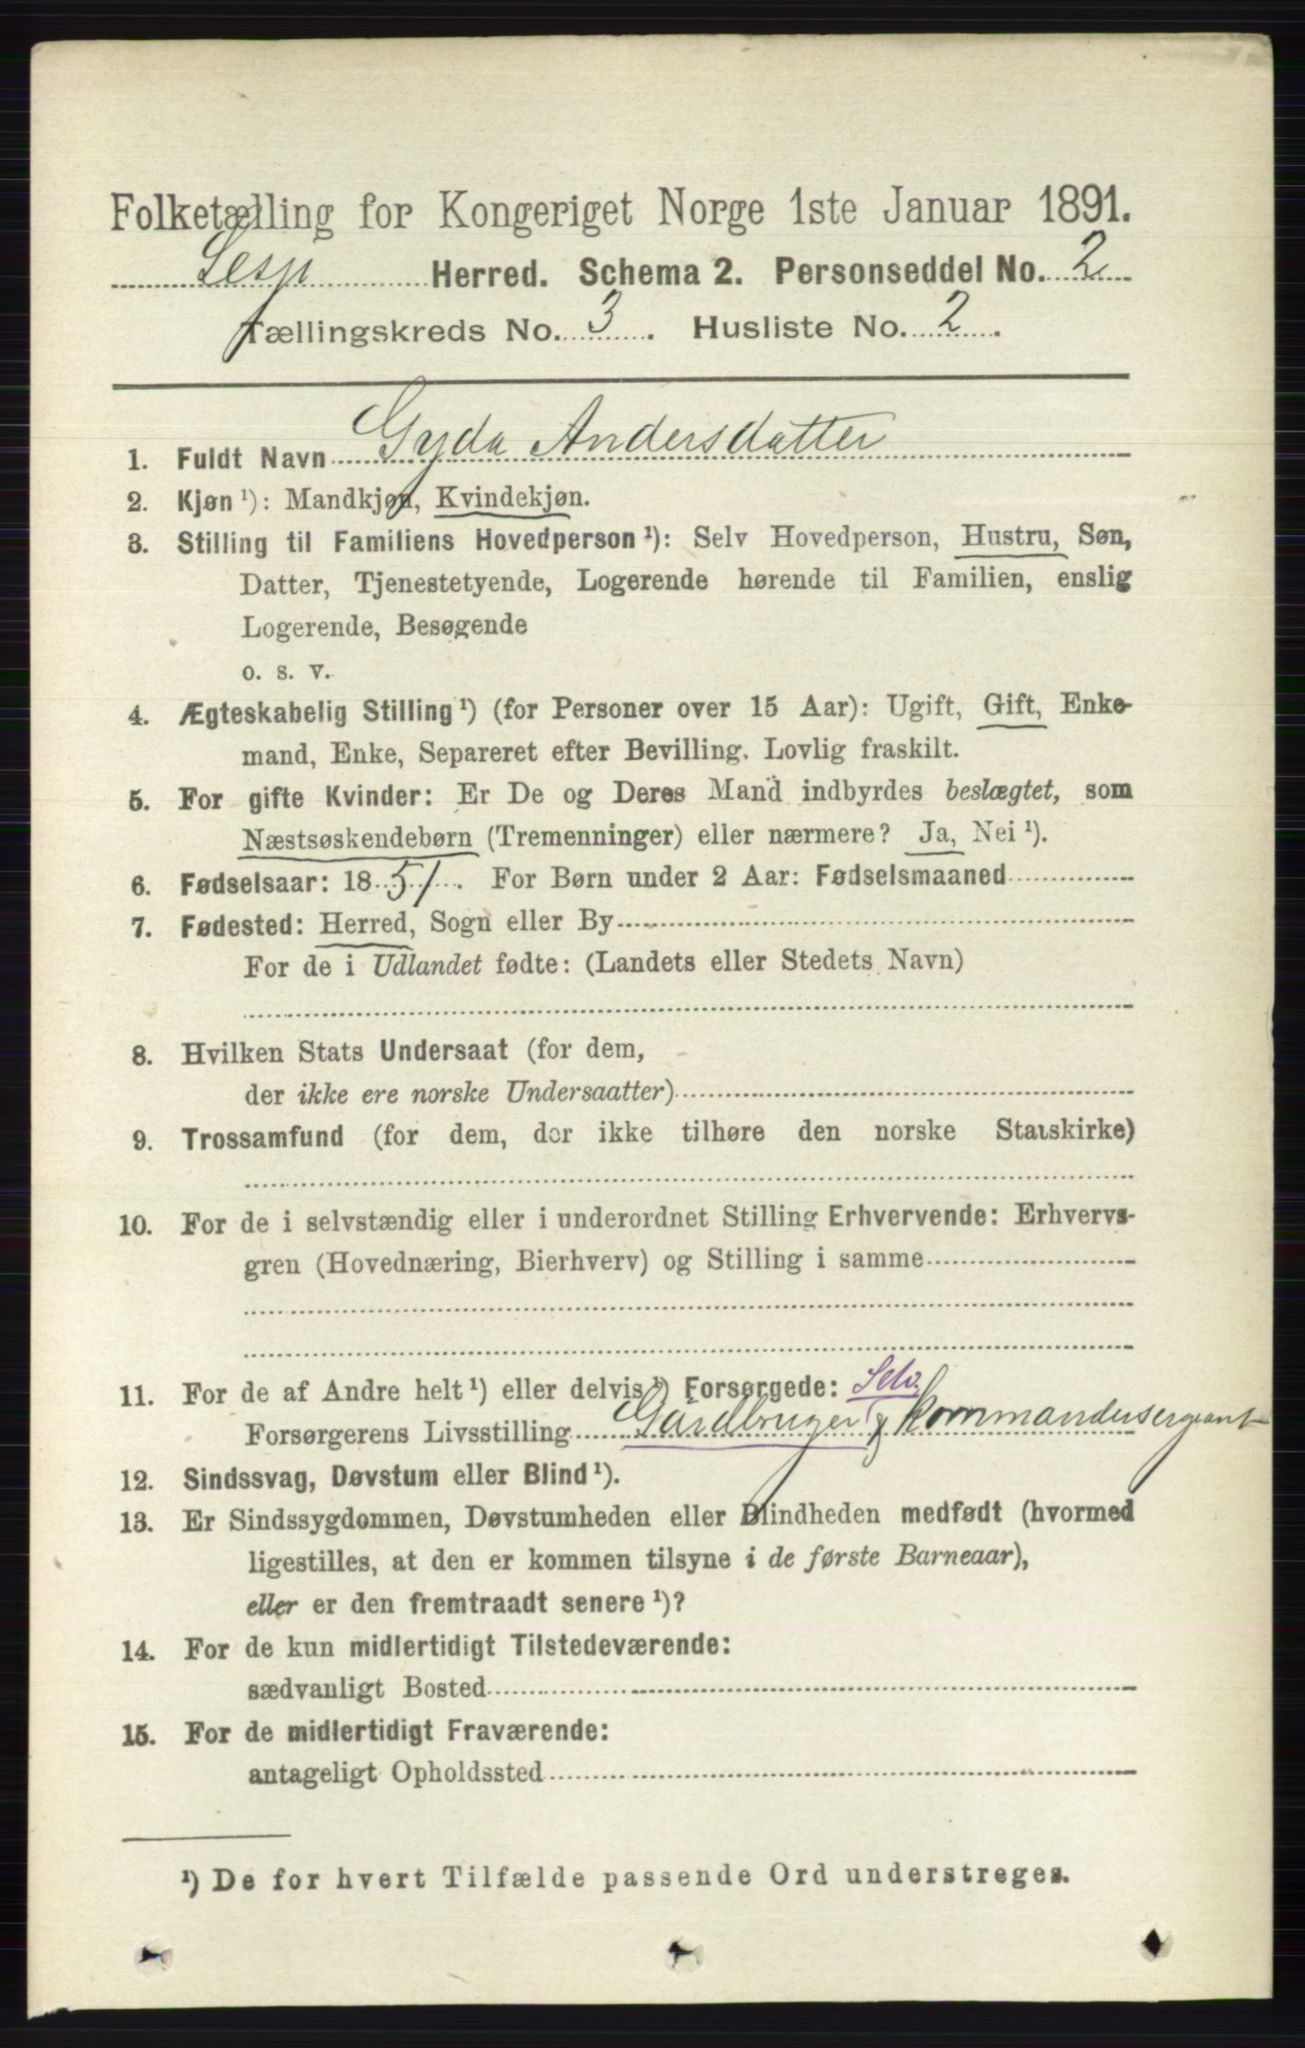 Folketælling for Kongeriget Norge 1ste Januar 1891.
Lesja Herred. Schema 2. Personseddel No. 2
Tællingskreds No. 3. Husliste No. 2.
1. Fuldt Navn Gyda Andersdatter
2. Kjøn ¹): Mandkjøn, Kvindekjøn.
3. Stilling til Familiens Hovedperson ¹): Selv Hovedperson, Hustru, Søn,
Datter, Tjenestetyende, Logerende hørende til Familien, enslig
Logerende, Besøgende
o. s. v.
4. Ægteskabelig Stilling ¹) (for Personer over 15 Aar): Ugift, Gift, Enke-
mand, Enke, Separeret efter Bevilling. Lovlig fraskilt.
5. For gifte Kvinder: Er De og Deres Mand indbyrdes beslægtet, som
Næstsøskendebørn (Tremenninger) eller nærmere? Ja, Nei ¹).
6. Fødselsaar: 1851. For Børn under 2 Aar: Fødselsmaaned
7. Fødested: Herred, Sogn eller By
For de i Udlandet fødte: (Landets eller Stedets Navn)
8. Hvilken Stats Undersaat (for dem,
der ikke ere norske Undersaatter)
9. Trossamfund (for dem, der ikke tilhøre den norske Statskirke)
10. For de i selvstændig eller i underordnet Stilling Erhvervende: Erhvervs-
gren (Hovednæring, Bierhverv) og Stilling i samme
11. For de af Andre helt ¹) eller delvis ¹) Forsørgede: Selv.
Forsørgerens Livsstilling Gårdbruger & Kommandersergeant
12. Sindssvag, Døvstum eller Blind ¹).
13. Er Sindssygdommen, Døvstumheden eller Blindheden medfødt (hvormed
ligestilles, at den er kommen tilsyne i de første Barneaar),
eller er den fremtraadt senere ¹)?
14. For de kun midlertidigt Tilstedeværende:
sædvanligt Bosted
15. For de midlertidigt Fraværende:
antageligt Opholdssted
¹) De for hvert Tilfælde passende Ord understreges.